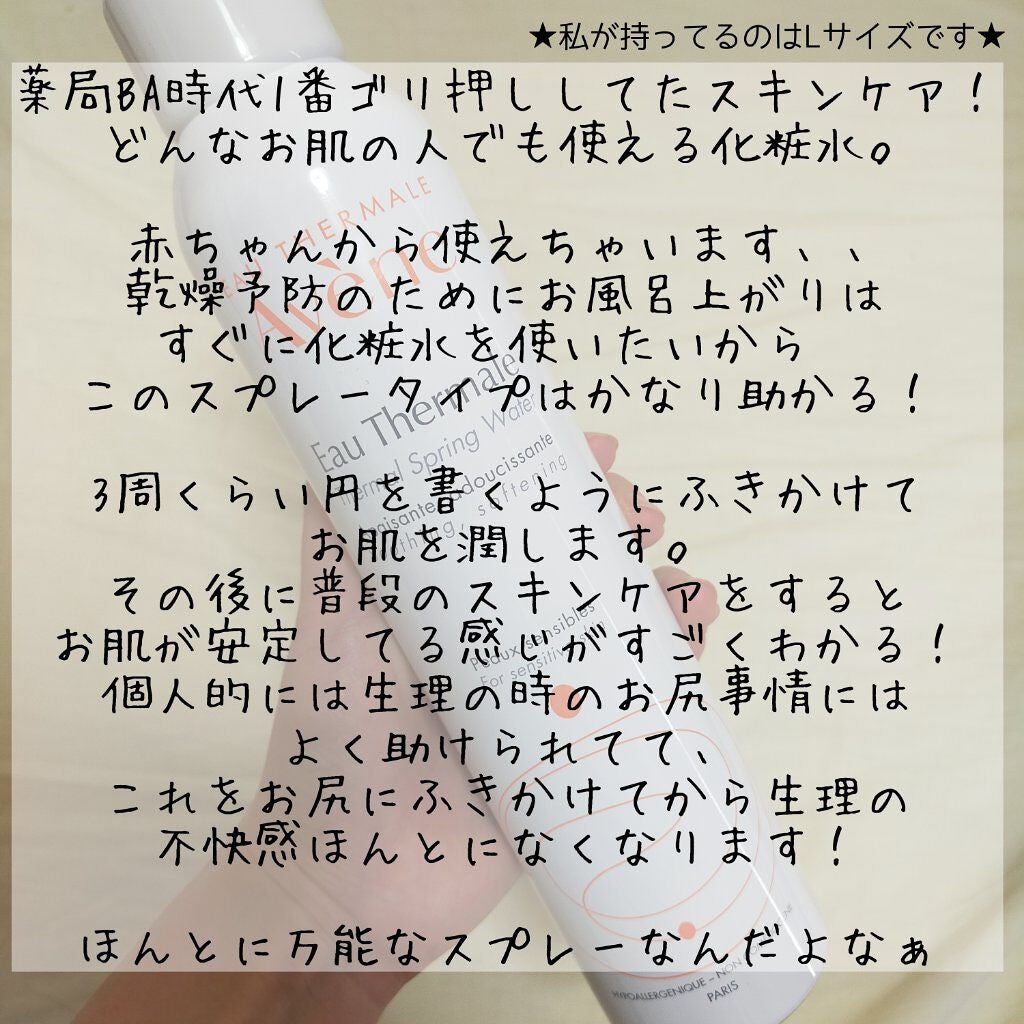 ★私が持ってるのはLサイズです★
薬局BA時代1番ゴリ押ししてたスキンケア!
どんなお肌の人でも使える化粧水。
赤ちゃんから使えちゃいます、、
乾燥予防のためにお風呂上がりは
すぐに化粧水を使いたいから
このスプレータイプはかなり助かる!
3周くらい円を書くようにふきかけて
お肌を潤します。
その後に普段のスキンケアをすると
お肌が安定してる感じがすごくわかる!
個人的には生理の時のお尻事情には
よく助けられてて、
これをお尻にふきかけてから生理の
不快感ほんとになくなります!
ほんとに万能なスプレーなんだよなぁ
EAU THERMALE
Avène
Eau Thermale
Thermal Spring Water
adoucissante
softening
Peaux sensibles
For sensitive skin
HYPOALLERGENIQUE – NON
PARIS